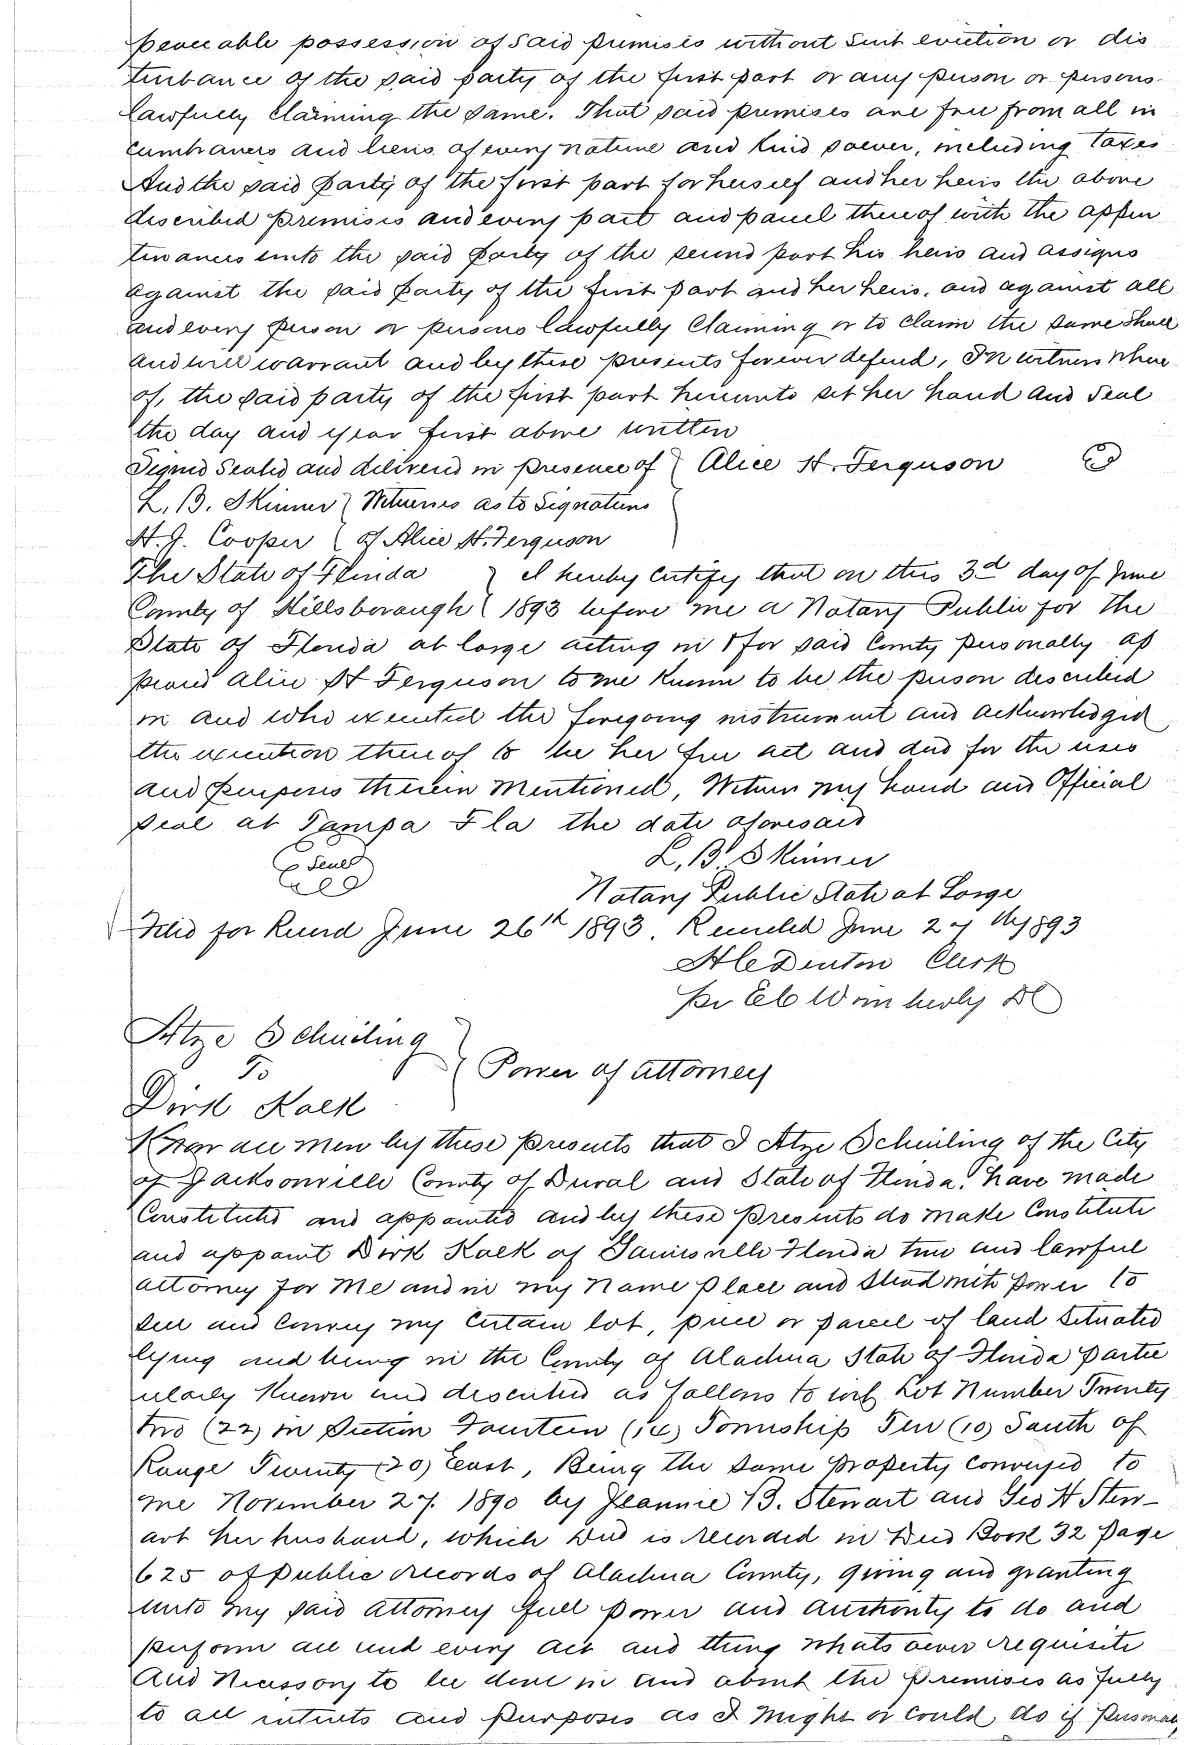 peaceable possession of said premises without suit eviction or dis
turbance of the said party of the first part or any person or persons
lawfully claiming the same. That said premises are free from all in
cumbrances and liens of every nature and kind soever, including taxes
And the said party of the first part for herself and her heirs the above
described premises and every part and parcel thereof with the appur
tenances unto the said party of the second part his heirs and assigns
against the said party of the first part and her heirs, and against all
and every person or persons lawfully claiming or to claim the same shall
and will warrant and by these presents forever defend, In witness where
of, the said party of the first part hereunto set her hand and seal
the day and year first above written
Signed Sealed and delivered in presence of } Alice H. Ferguson
L. B. Skinner } Witnesses as to Signatures
H. J. Cooper } of Alice H. Ferguson
The State of Florida } I hereby certify that on this 3d day of June
County of Hillsborough } 1893 before me a Notary Public for the
State of Florida at large acting in & for said County personally ap
peared Alice H Ferguson to me known to be the person described
in and who executed the foregoing instrument and acknowledged
the execution thereof to be her free act and deed for the uses
and purposes therein mentioned, Witness my hand and Official
seal at Tampa Fla the date aforesaid
Seal L. B. Skinner
Notary Public State at Large
Filed for Record June 26th 1893. Recorded June 27th 1893
H C Denton Clerk
pr E C Wimberly DC
Atze Schuiling
To } Power of attorney
Dirk Kalk
Know all men by these presents that I Atze Schuiling of the City
of Jacksonville County of Duval and State of Florida. have made
Constituted and appointed and by these presents do make Constitute
and appoint Dirk Kalk of Gainesville Florida true and lawful
attorney for me and in my name place and stead with power to
sell and convey my certain lot, piece or parcel of land situated
lying and being in the County of Alachua State of Florida partic
ularly known and described as follows to wit Lot Number Twenty
two (22) in Section Fourteen (14) Township Ten (10) South of
Range Twenty (20) East, Being the same property conveyed to
me November 27. 1890 by Jeannie B. Stewart and Geo H Stew-
art her husband, which Deed is recorded in Deed Book 32 page
625 of Public records of Alachua County, giving and granting
unto my said attorney full power and authority to do and
perform all and every act and thing whatsoever requisite
And Necessary to be done in and about the premises as fully
to all intents and purposes as I might or could do if personally